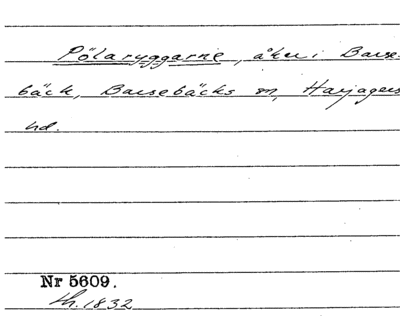 Pölaryggarne, åker i Barse-
bäck, Barsebäcks sn, Harjagers
hd.
Nr 5609.
lh. 1832